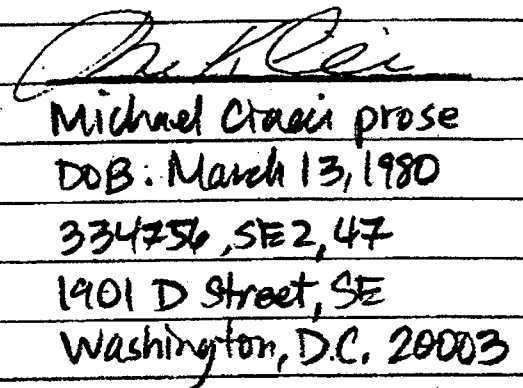 Michael prose
DOB: March 13, 1980
334756, SE2, 47
1901 D Street, SE
Washington, D.C. 20003